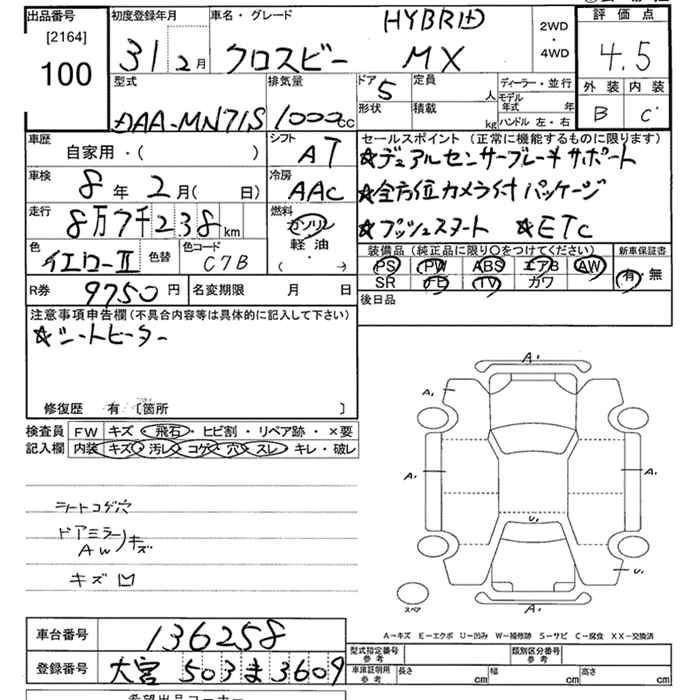 出品番号 初度登録年月 車名・グレード 評価点
[2164] HYBRID 2WD
100 31 2月 クロスビー MX ・4WD 4.5
型式 排気量 ドア 5 定員 人 ディーラー・並行 外装 内装
DAA-MN71S 1000cc 形状 積載 kg モデル年式 年 B C
ハンドル 左・右
車歴 シフト セールスポイント(正常に機能するものに限ります)
自家用・( ) AT ☆デュアルセンサーブレーキサポート
車検 冷房 ☆全方位カメラ付パッケージ
8年2月( 日) AAC ☆プッシュスタート ☆ETC
走行 燃料
8万7千238km ガソリン
色 色替 色コード 軽油
イエローII C7B ( )
装備品(純正品に限り○をつけてください) 新車保証書
PS PW ABS エアB AW 有・無
SR ナビ TV カワ
R券 9750円 名変期限 月 日 後日品
注意事項申告欄(不具合内容等は具体的に記入して下さい)
☆シートヒーター
修復歴 有 〔箇所 〕
検査員 FW キズ・飛石・ヒビ割・リペア跡・×要
記入欄 内装 キズ・汚レ・コゲ・穴・スレ・キレ・破レ
A1
A1 A1
A1 A1
U1
U1
A1
スペア
シートコゲ穴
ドアミラー
AW キズ
キズ
A-キズ E-エクボ U-凹み W-補修跡 S-サビ C-腐食 XX-交換済
車台番号 136258
型式指定番号 参考 類別区分番号 参考
登録番号 大宮 503 ま 3609
車庫証明用 参考 長さ cm 幅 cm 高さ cm
希望出品コーナー